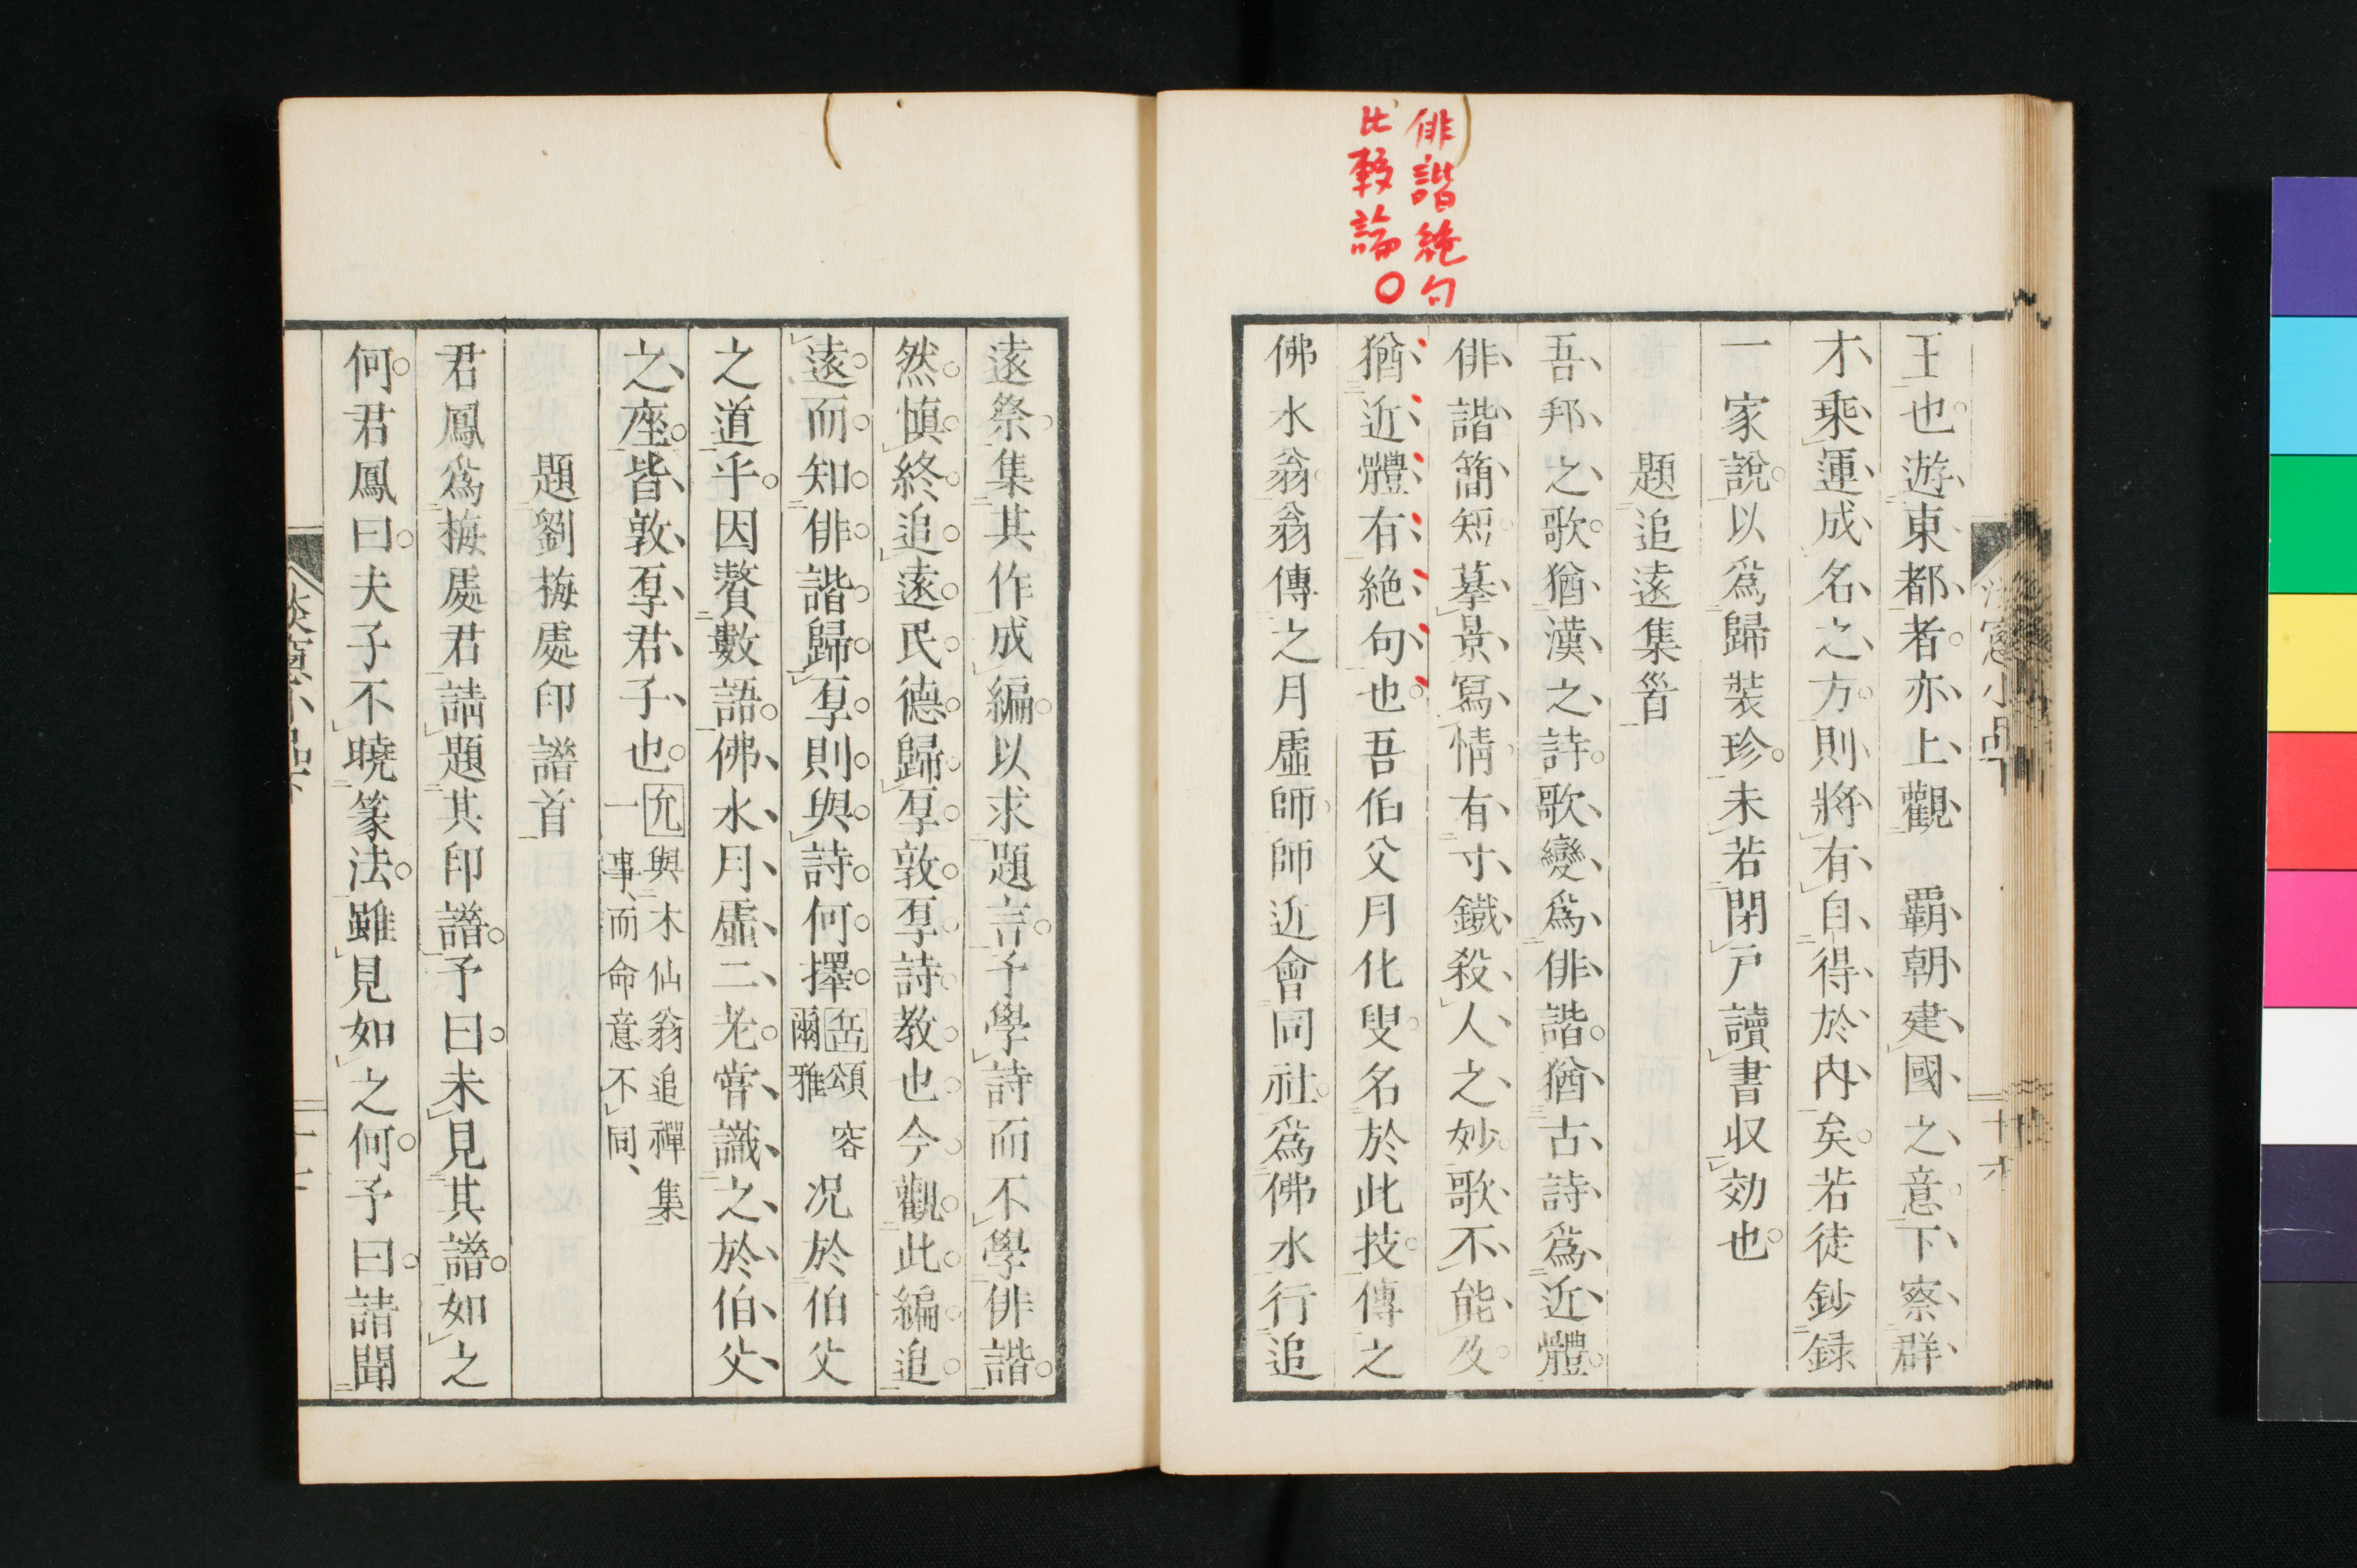 俳諧絶句
比較論〇
王也遊東都者亦上觀　覇朝建國之意下察群
才乘運成名之方則將有自得於内矣若徒鈔録
一家説以爲歸裝珍未若閉戸讀書収効也
題追遠集首
吾邦之歌猶漢之詩歌變爲俳諧猶古詩爲近體
俳諧簡短摹景寫情有寸鐵殺人之妙歌不能及
猶近體有絶句也吾伯父月化叟名於此技傳之
佛水翁翁傳之月虚師師近會同社爲佛水行追
遠祭集其作成編以求題言予學詩而不學俳諧
然愼終追遠民德歸厚敦厚詩教也今觀此編追
遠而知俳諧歸厚則與詩何擇岳頌容爾雅况於伯父
之道乎因贅數語佛水月虚二老嘗識之於伯父
之座皆敦厚君子也允與木仙翁追禪集
一事而命意不同
題劉梅處印譜首
君鳳爲梅處君請題其印譜予曰未見其譜如之
何君鳳曰夫子不曉篆法雖見如之何予曰請聞